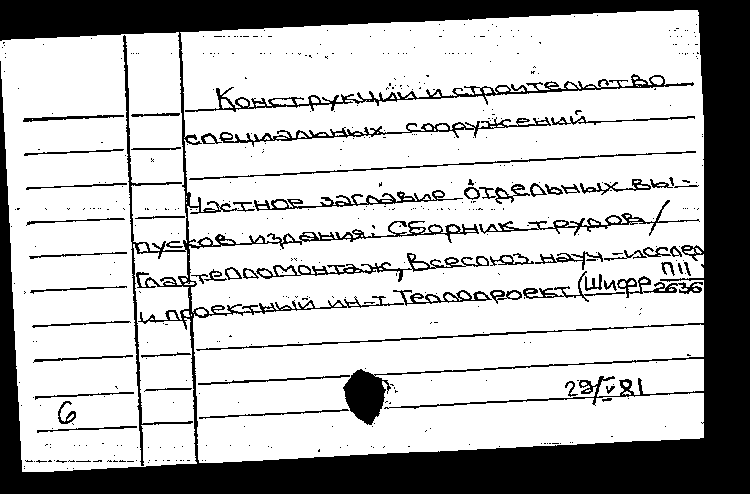 Конструкции и строительство
специальных сооружений.
Частное заглавие отдельных вы-
пусков издания: Сборник трудов/
Главтепломонтаж, Всесоюз. науч.-исслед.
и проектный ин-т Теплопроект (Шифр П11/2636
29/V 81
6